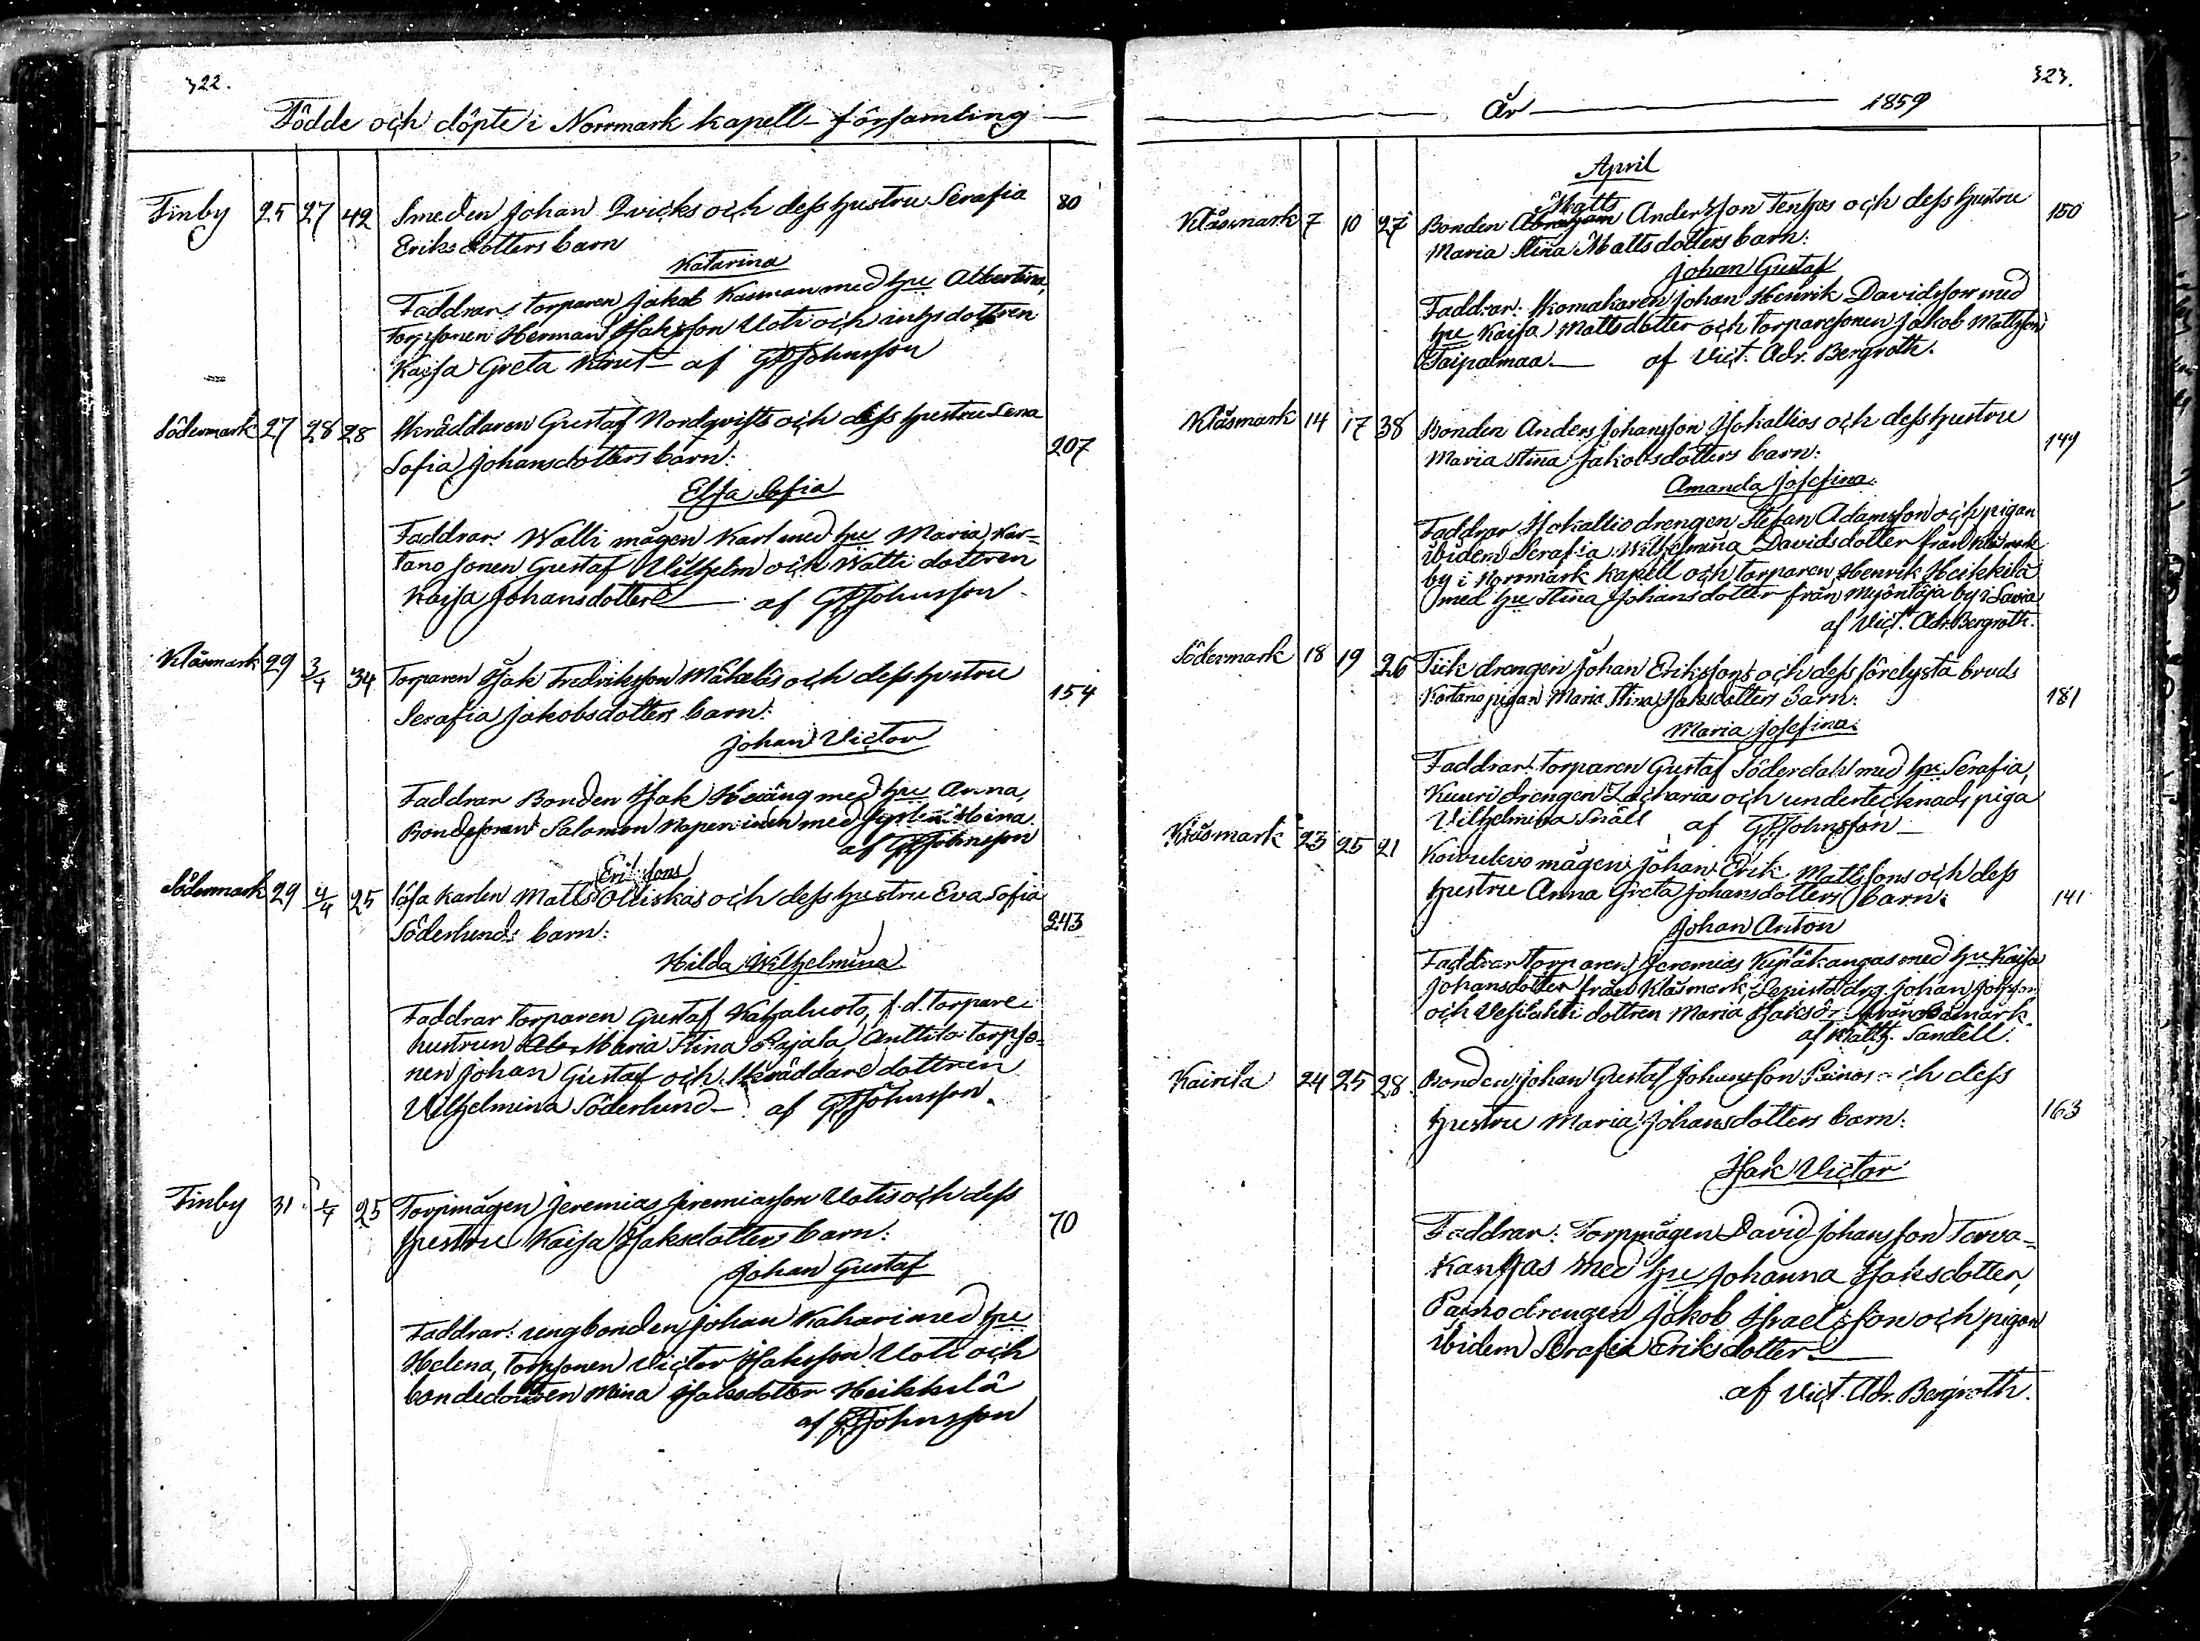 322.
Födde och döpte i Norrmark kapell-församling
Finby 25 27 42 Smeden Johan Qvicks och dess hustru Serafia 80
Eriksdotters barn
Katarina
Faddrar: torparen Jakob Kasman med hu Albertina,
Torpsonen Herman Isaksson Uoti och inhs dottren
Kajsa Greta Knut — af GF Johnsson
Södermark 27 28 28 Skräddaren Gustaf Nordqvists och dess hustru Lena 207
Sofia Johansdotters barn:
Elsa Sofia
Faddrar: Walli mågen Karl med hu Maria, Kar=
tano sonen Gustaf Vilhelm och Walli dottren
Kajsa Johansdotter — af GF Johnsson
Klåsmark 29 3/4 34 Torparen Isak Fredriksson Mäkeläs och dess hustru 154
Serafia Jakobsdotters barn:
Johan Victor
Faddrar Bonden Isak med hu Anna,
Bondesonen Salomon med Mina
af GF Johnsson
Södermark 29 4/4 25 Lösa karlen Matts Erikssons Olliskas och dess hustru Eva Sofia 243
Söderlunds barn:
Hilda Wilhelmina
Faddrar torparen Gustaf Katzaluoto, f.d. torpare
hustrun Maria Stina Rajala, Anttila torpso=
nen Johan Gustaf och Skräddare dottren
Vilhelmina Söderlund — af GF Johnsson.
Finby 31 /4 25 Torpmågen Jeremias Jeremiasson Uotis och dess 70
hustru Kajsa Isaksdotters barn:
Johan Gustaf
Faddrar: ungbonden Johan Kahari med hu
Helena, torpsonen Victor Isaksson Uoti och
bondedottren Mina Isaksdotter Heikkilä
af GF Johnsson
323.
År 1859
April
Klåsmark 7 10 27 Bonden Abraham Matts Andersson Tenhos och dess hustru 150
Maria Stina Mattsdotters barn:
Johan Gustaf
Faddrar: Skomakaren Johan Henrik Davidsson med
hu Kajsa Mattsdotter och torparesonen Jakob Mattsson
Taipalmaa — af Vict. Adr. Bergroth.
Klåsmark 14 17 38 Bonden Anders Johansson Isokallios och dess hustru 149
Maria Stina Jakobsdotters barn:
Amanda Josefina.
Faddrar Isokallio drengen Stefan Adamsson och pigan
ibidem Serafia Wilhelmina Davidsdotter från Klåsmark
by i Norrmark Kapell och torparen Henrik Heikkilä
med hu Stina Johansdotter från Myöntäjä by i Lavia
af Vict. Adr. Bergroth.
Södermark 18 19 26 drengen Johan Erikssons och dess förelysta bruds
Kartano pigan Maria Stina Isaksdotters barn: 181
Maria Josefina.
Faddrar torparen Gustaf Söderdahl med hu Serafia,
Kuuri drengen Zacharias och undertecknads piga
Vilhelmina Snäll af GF Johnsson —
Klåsmark 23 25 21 Koivulevo mågen Johan Erik Mattssons och dess
hustru Anna Greta Johansdotters barn: 141
Johan Anton
Faddrar torparen Jeremias Kypäkangas med hu Kajsa
Johansdotter från Klåsmark, Lepistö drg. Johan
och dottren Maria Isaksdr från Påmark.
af Matth. Sandell.
Kairila 24 25 28 Bonden Johan Gustaf Johansson Painos och dess
hustru Maria Johansdotters barn: 163
Isak Victor
Faddrar: Torpmågen David Johansson Terva=
Kangas med hu Johanna Isaksdotter,
Painodrengen Jakob Israelsson och pigan
ibidem Serafia Eriksdotter —
af Vict. Adr. Bergroth.